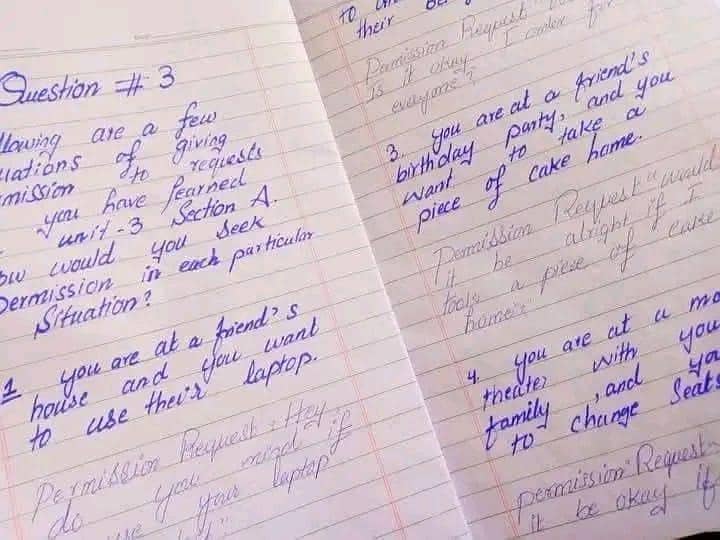 Question # 3
llowing are a few
uations of giving
mission to requests
you have fearned
unit-3 Section A.
ow would you seek
Permission in each particular
Situation?
1 you are at a friend's
house and you want
to use their laptop.
Permission Request: Hey
do you mind if
use your laptop
to
their
Permission Request
Is it okay I order for
everyone?
3. you are at a friend's
birthday party, and you
want to take a
piece of cake home.
Permission Request "would
it be alright if I
took a piece of cake
home"
4. you are at a mo
theater with you
family, and yo
to change Seats
permission Request
it be okay if